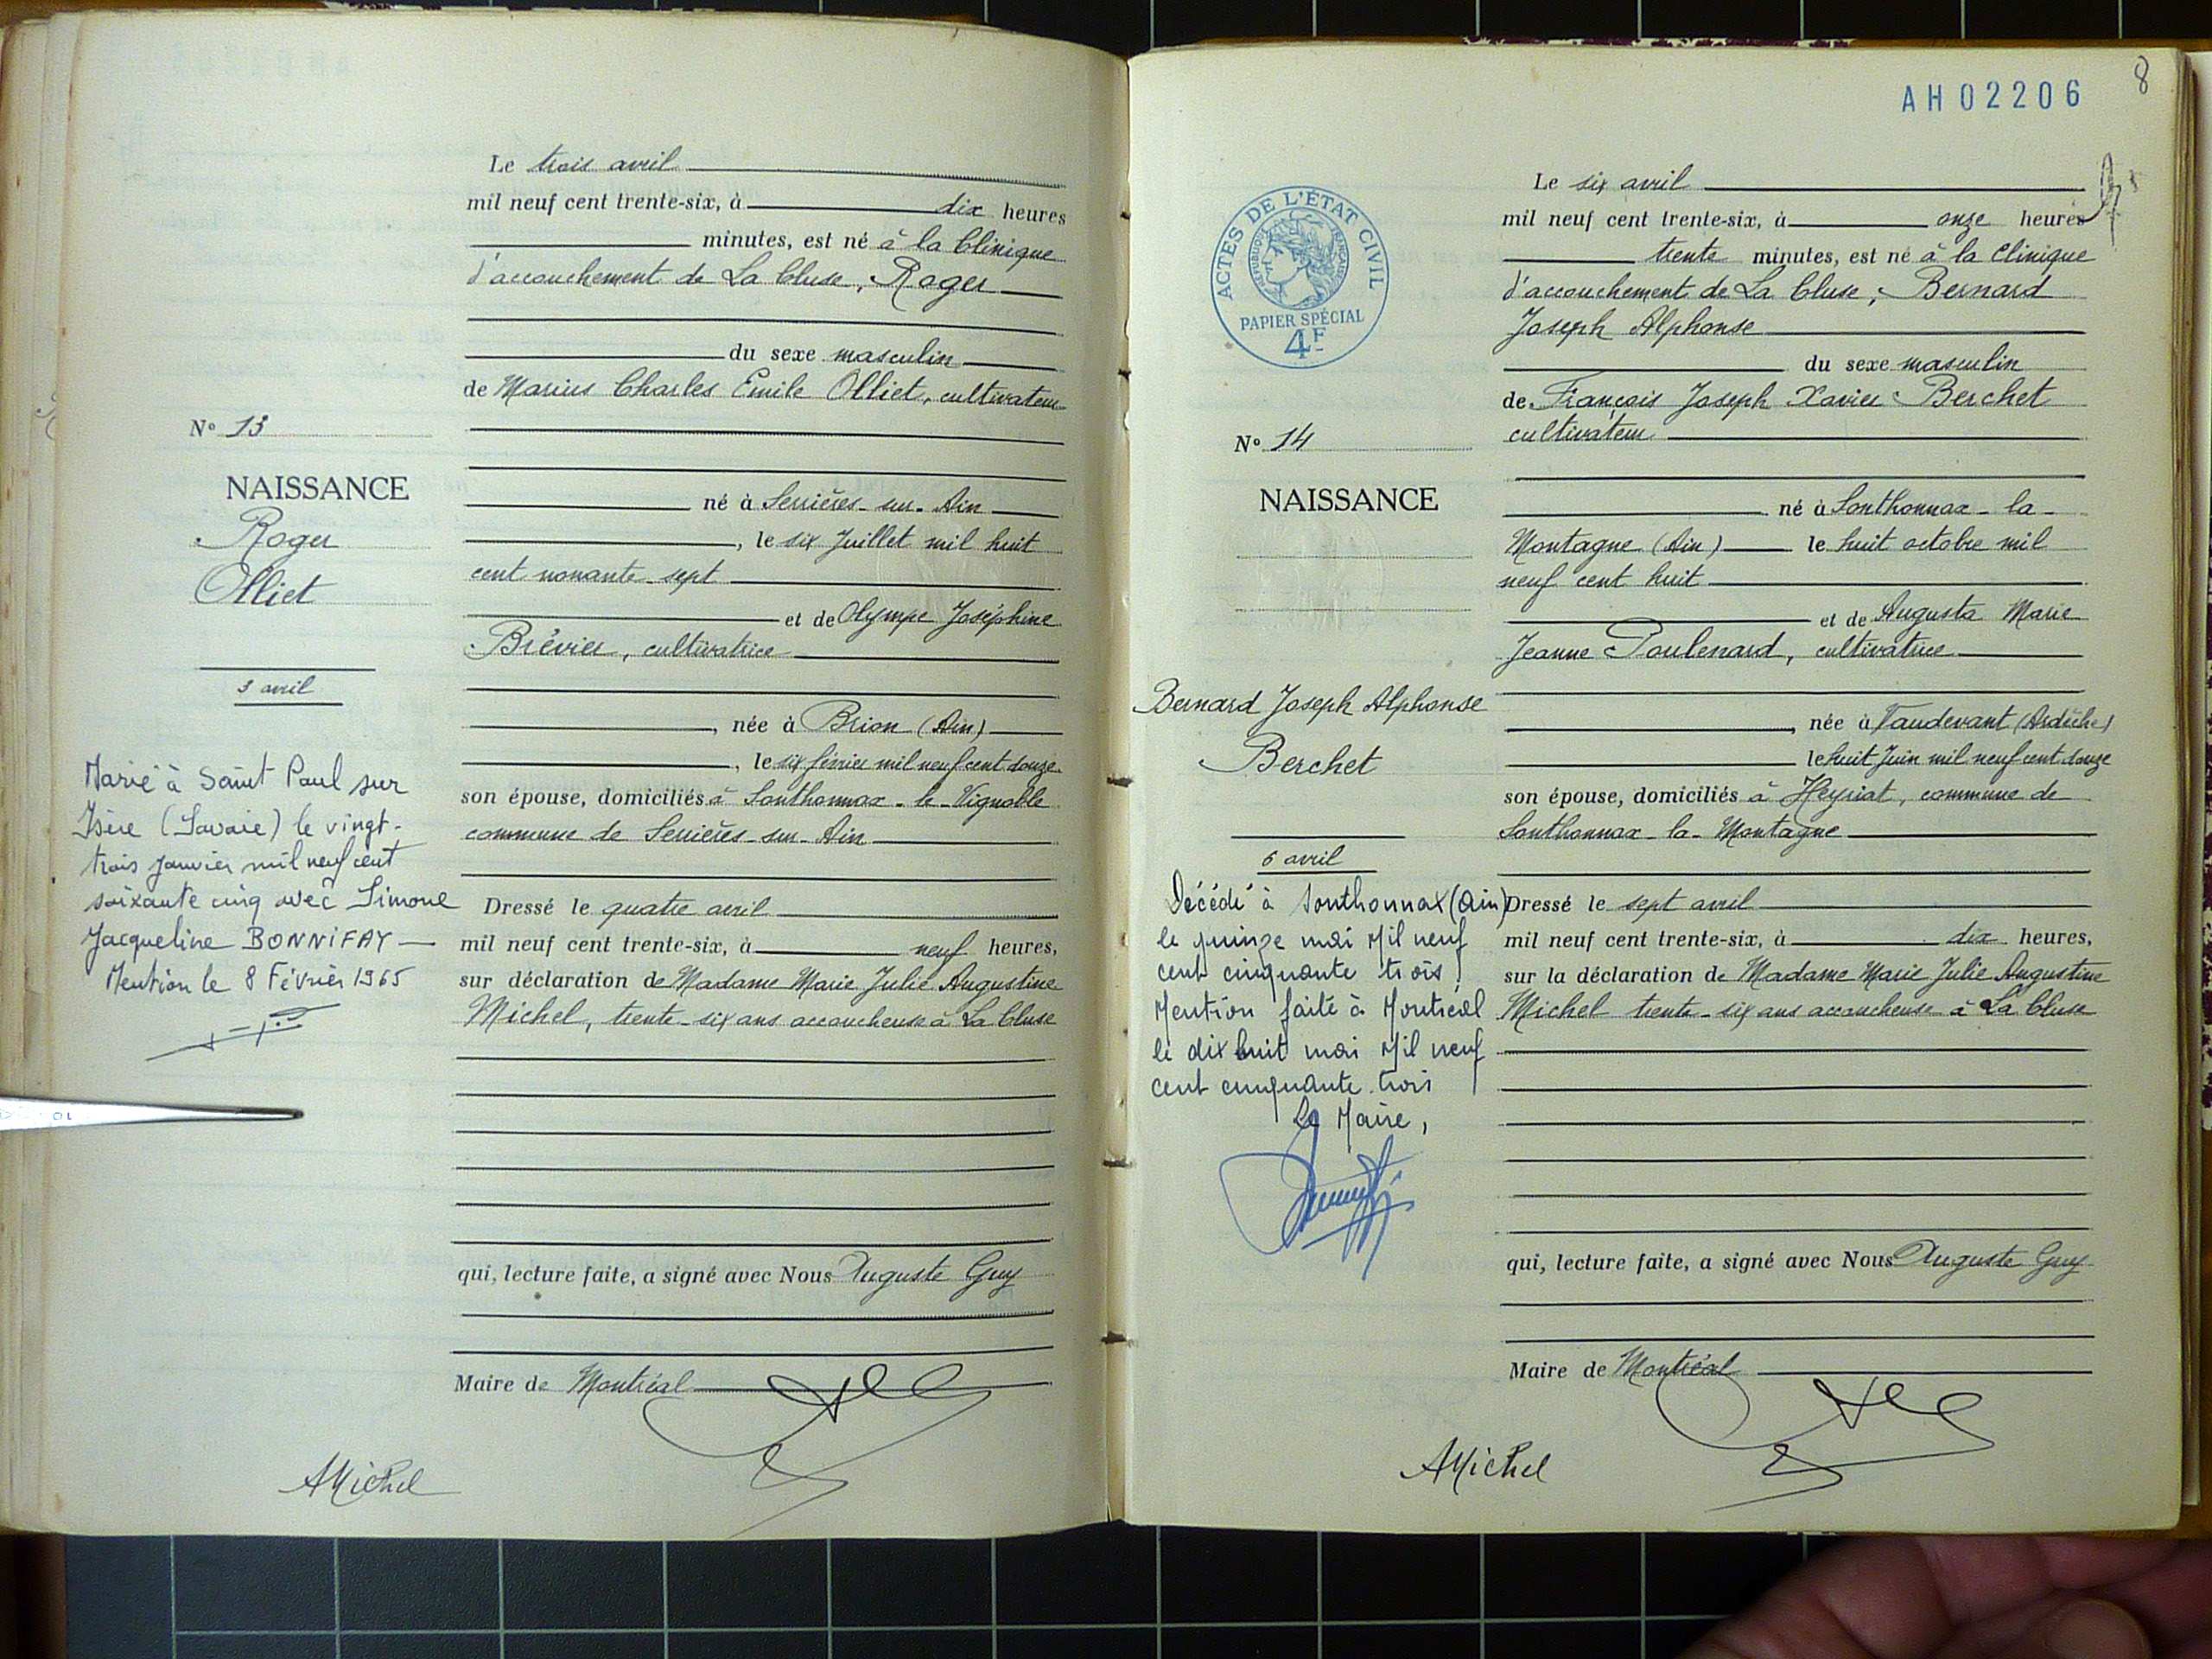 Le trois avril
mil neuf cent trente-six, à dix heures
minutes, est né à la Clinique
d'accouchement de La Cluse, Roger
du sexe masculin
de Marius Charles Emile Olliet, cultivateur
né à Serrières-sur-Ain
, le six Juillet mil huit
cent nonante-sept
et de Olympe Joséphine
Brévier, cultivatrice
, née à Brion (Ain)
, le six février mil neuf cent douze
son épouse, domiciliés à Sonthonnax-le-Vignoble
commune de Serrières-sur-Ain
Dressé le quatre avril
mil neuf cent trente-six, à neuf heures,
sur déclaration de Madame Marie Julie Augustine
Michel, trente-six ans accoucheuse à La Cluse
qui, lecture faite, a signé avec Nous Auguste Guy
Maire de Montréal
AMichel
No 13
NAISSANCE
Roger
Olliet
3 avril
Marié à Saint Paul sur
Isère (Savoie) le vingt-
trois janvier mil neuf cent
soixante cinq avec Simone
Jacqueline BONNIFAY
Mention le 8 Février 1965
8
AH02206
ACTES DE L'ÉTAT CIVIL
RÉPUBLIQUE FRANÇAISE
PAPIER SPÉCIAL
4F
Le six avril
mil neuf cent trente-six, à onze heures
trente minutes, est né à la Clinique
d'accouchement de La Cluse, Bernard
Joseph Alphonse
du sexe masculin
de François Joseph Xavier Berchet
cultivateur
né à Sonthonnax-la-
Montagne (Ain) le huit octobre mil
neuf cent huit
et de Augusta Marie
Jeanne Poulenard, cultivatrice
, née à Vaudevant (Ardèche)
le huit Juin mil neuf cent douze
son épouse, domiciliés à Heyriat, commune de
Sonthonnax-la-Montagne
Dressé le sept avril
mil neuf cent trente-six, à dix heures,
sur la déclaration de Madame Marie Julie Augustine
Michel trente-six ans accoucheuse à La Cluse
qui, lecture faite, a signé avec Nous Auguste Guy
Maire de Montréal
AMichel
No 14
NAISSANCE
Bernard Joseph Alphonse
Berchet
6 avril
Décédé à Sonthonnax (Ain)
le quinze mai Mil neuf
cent cinquante trois
Mention faite à Montréal
le dix huit mai Mil neuf
cent cinquante trois
Le Maire,